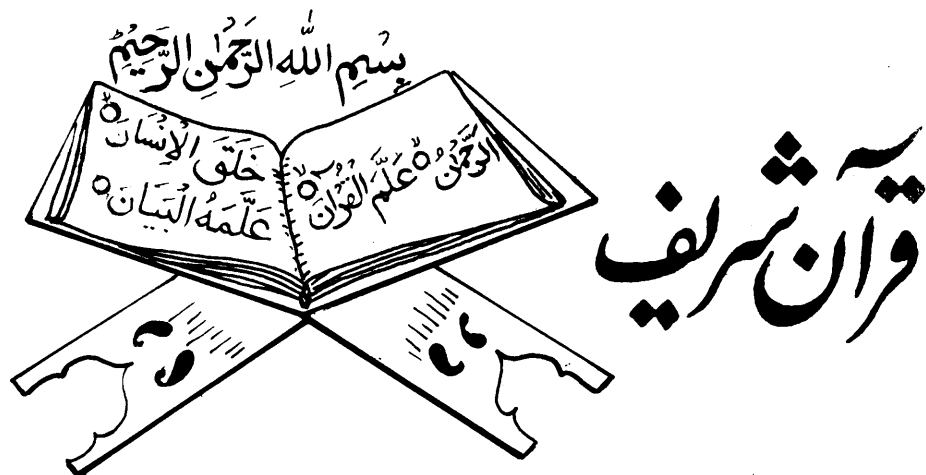 بِسْمِ اللهِ الرَّحْمٰنِ الرَّحِيْمِ
الرَّحْمٰنُ ○ عَلَّمَ الْقُرْاٰنَ ○
خَلَقَ الْاِنْسَانَ ○
عَلَّمَهُ الْبَيَانَ ○
قرآن شریف